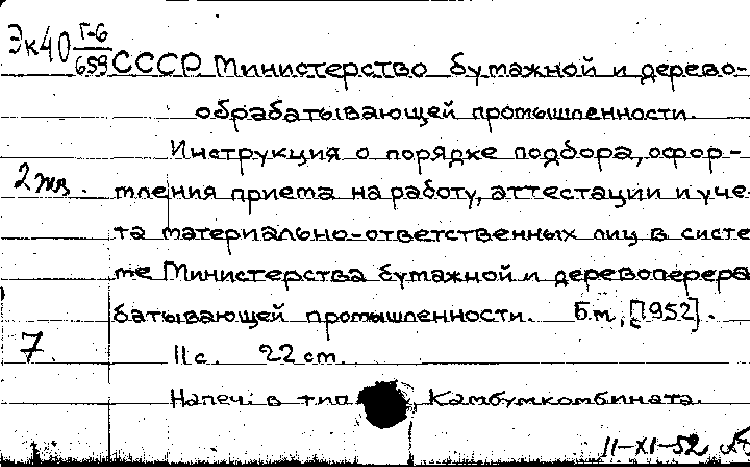 Эк40 Г-6/659 СССР Министерство бумажной и дерево-
обрабатывающей промышленности.
Инструкция о порядке подбора, офор-
2 экз. мления приема на работу, аттестации и уче
та материально-ответственных лиц в систе
ме Министерства бумажной и деревоперера
батывающей промышленности. Б.м., [1952].
7. 11 с. 22 см.
Напеч. в тип Камбумкомбината.
11-XI-52